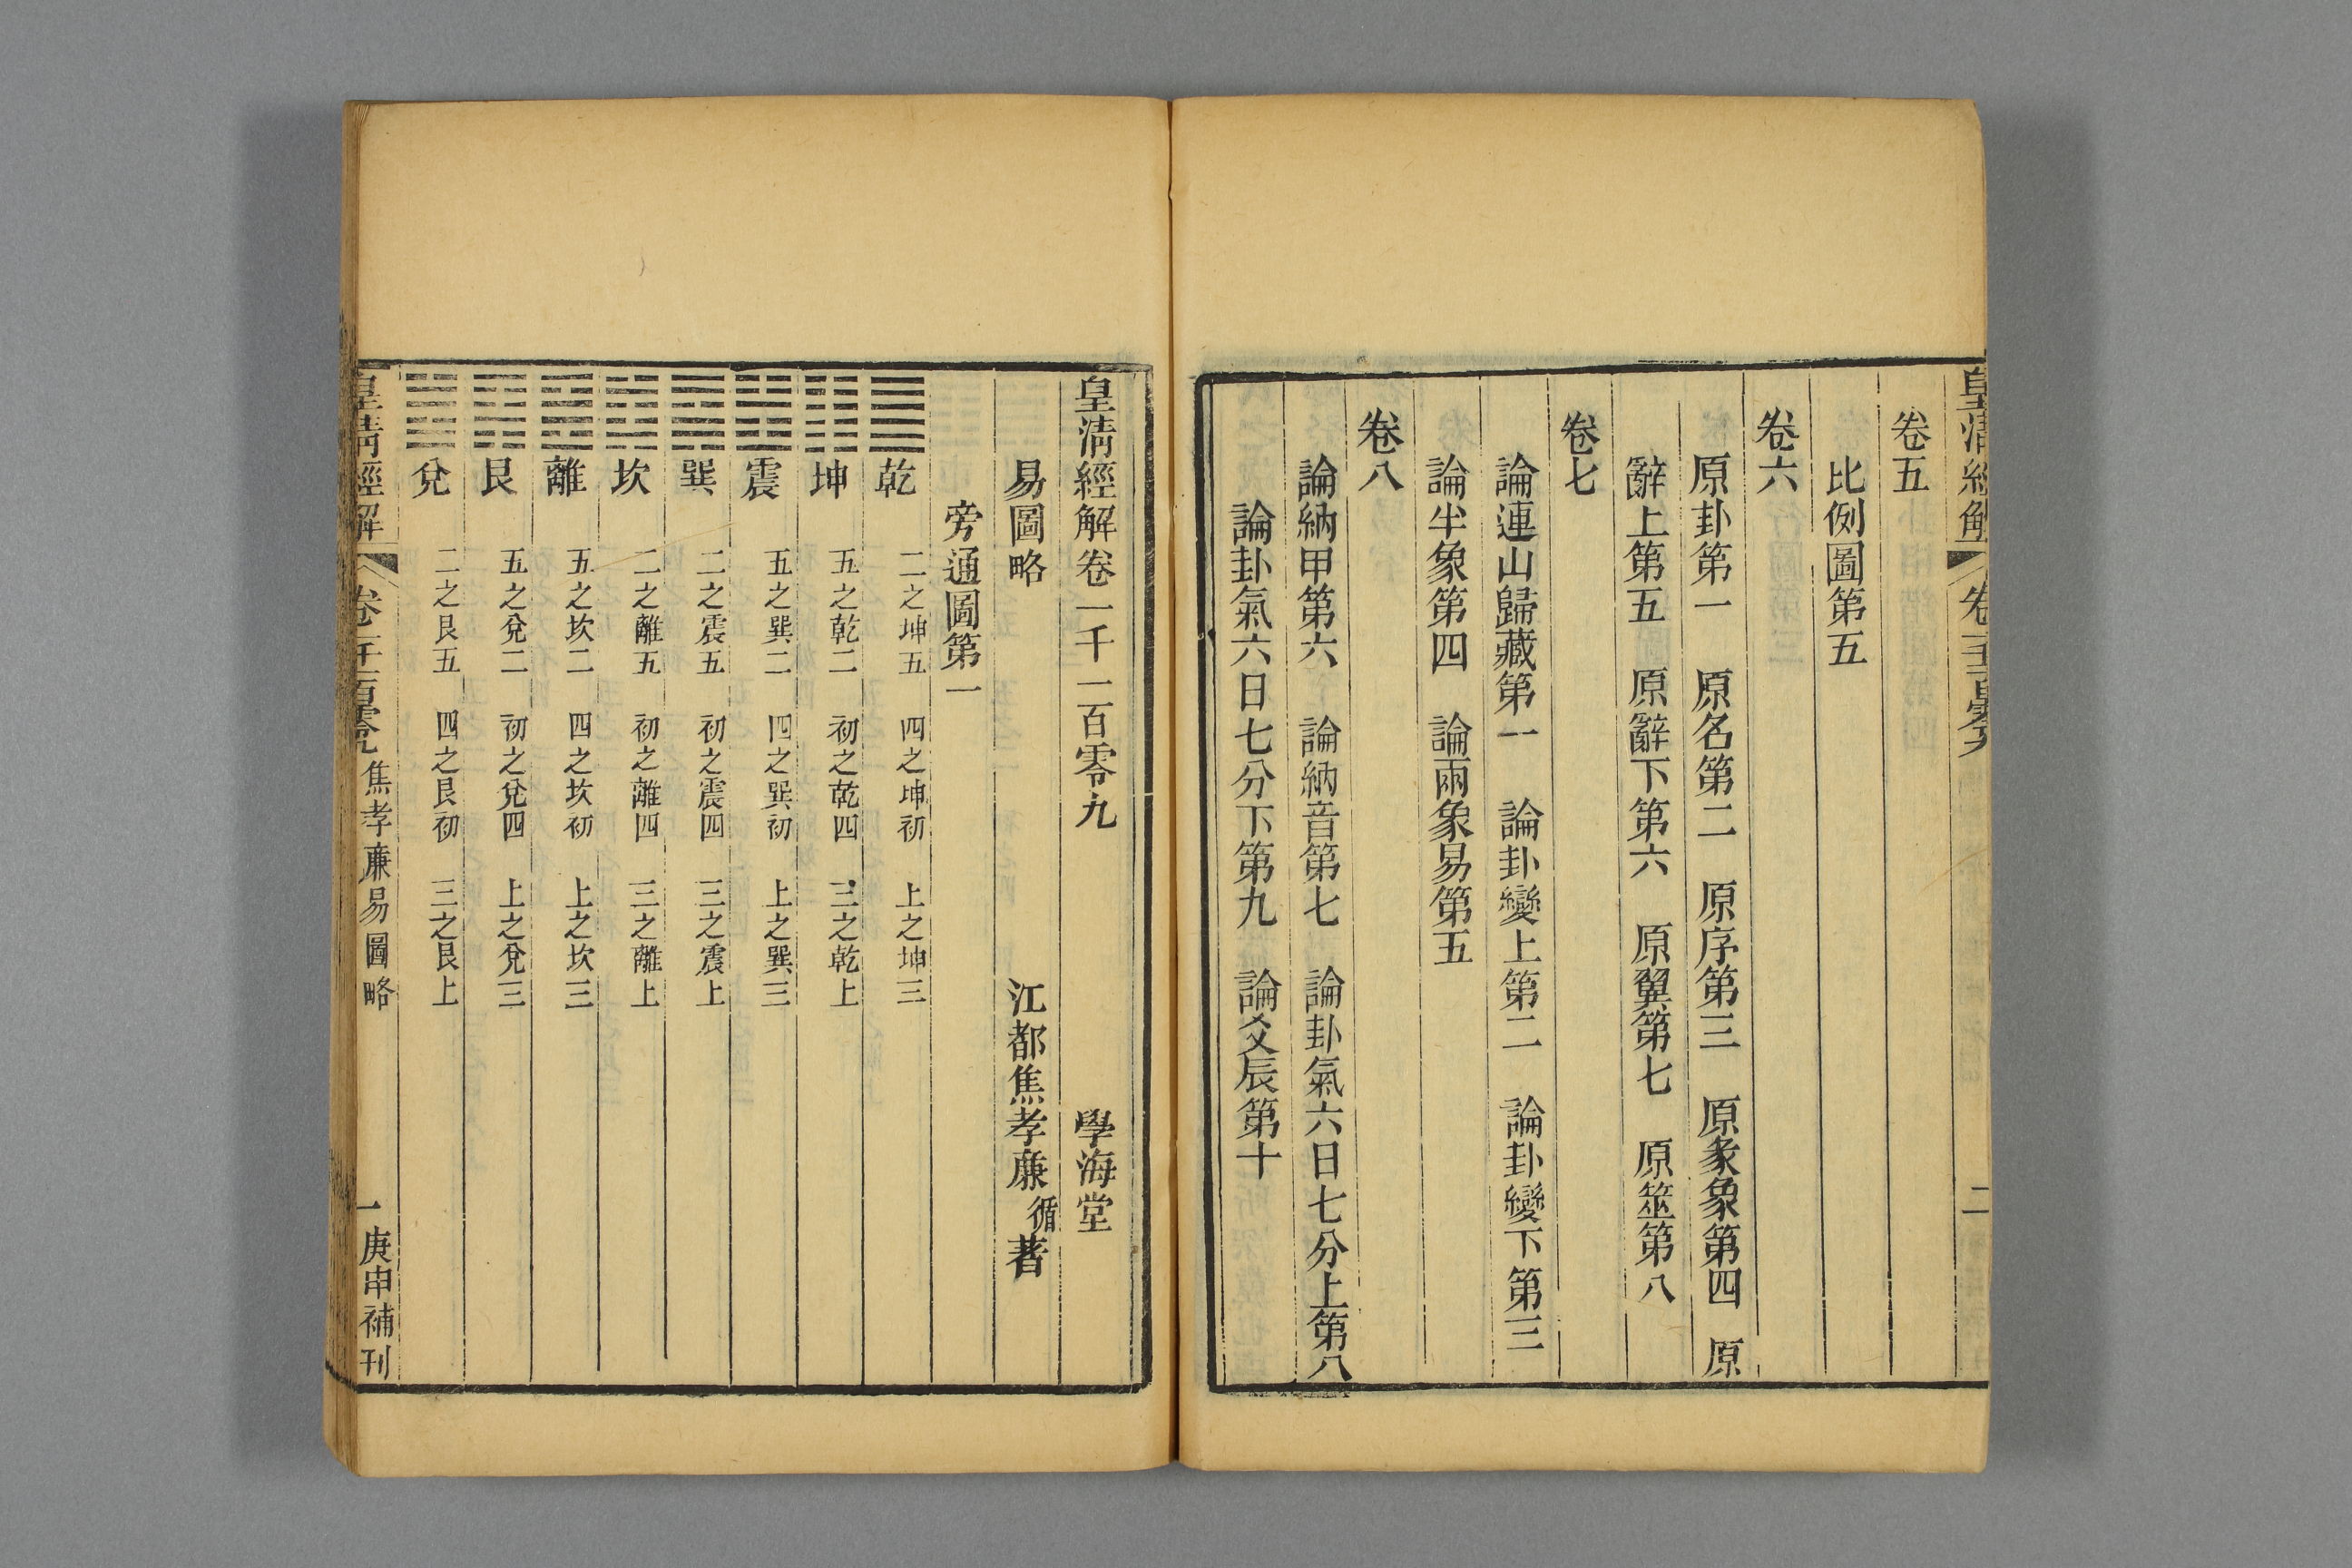 皇清經解
卷五
比例圖第五
卷六
原卦第一 原名第二 原序第三 原彖象第四 原
辭上第五 原辭下第六 原翼第七 原筮第八
卷七
論連山歸藏第一 論卦變上第二 論卦變下第三
論半象第四 論兩象易第五
卷八
論納甲第六 論納音第七 論卦氣六日七分上第八
論卦氣六日七分下第九 論爻辰第十
皇清經解卷一千一百零九 學海堂
易圖略 江都焦孝廉循著
旁通圖第一
乾 二之坤五 四之坤初 上之坤三
坤 五之乾二 初之乾四 三之乾上
震 五之巽二 四之巽初 上之巽三
巽 二之震五 初之震四 三之震上
坎 二之離五 初之離四 三之離上
離 五之坎二 四之坎初 上之坎三
艮 五之兌二 初之兌四 上之兌三
兌 二之艮五 四之艮初 三之艮上
皇清經解 卷一千一百零九 焦孝廉易圖略 一 庚申補刊